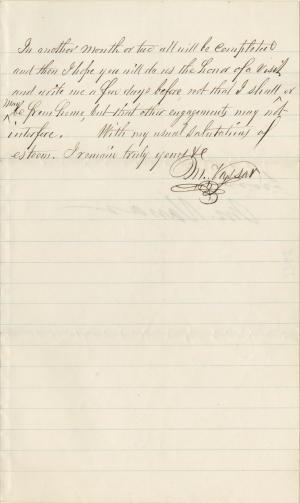 In another month or two all will be completed
and then I hope you will do us the honor of a visit
and write me a few days before not that I shall or
may
be from home, but that other engagements may not
interfere. With my usual salutations of
esteem. I remain truly yours &c
M. Vassar